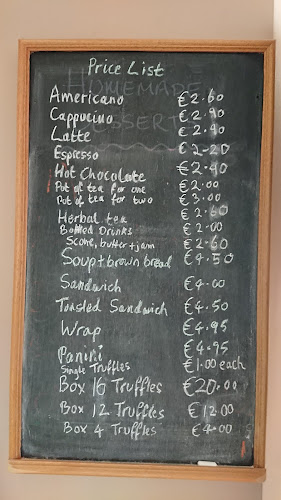 Price List
HOMEMADE
DESSERTS
Americano €2.60
Cappucino €2.90
Latte €2.90
Espresso €2-20
Hot Chocolate €2.40
Pot of tea for one €2.00
Pot of tea for two €3.00
Herbal tea €2.60
Bottled Drinks €2.00
Scone, butter+jam €2.60
Soup+brown bread €4.50
Sandwich €4.00
Toasted Sandwich €4.50
Wrap €4.95
Panini €4.95
Single Truffles €1.00 each
Box 16 Truffles €20.00
Box 12 Truffles €12.00
Box 4 Truffles €4.00